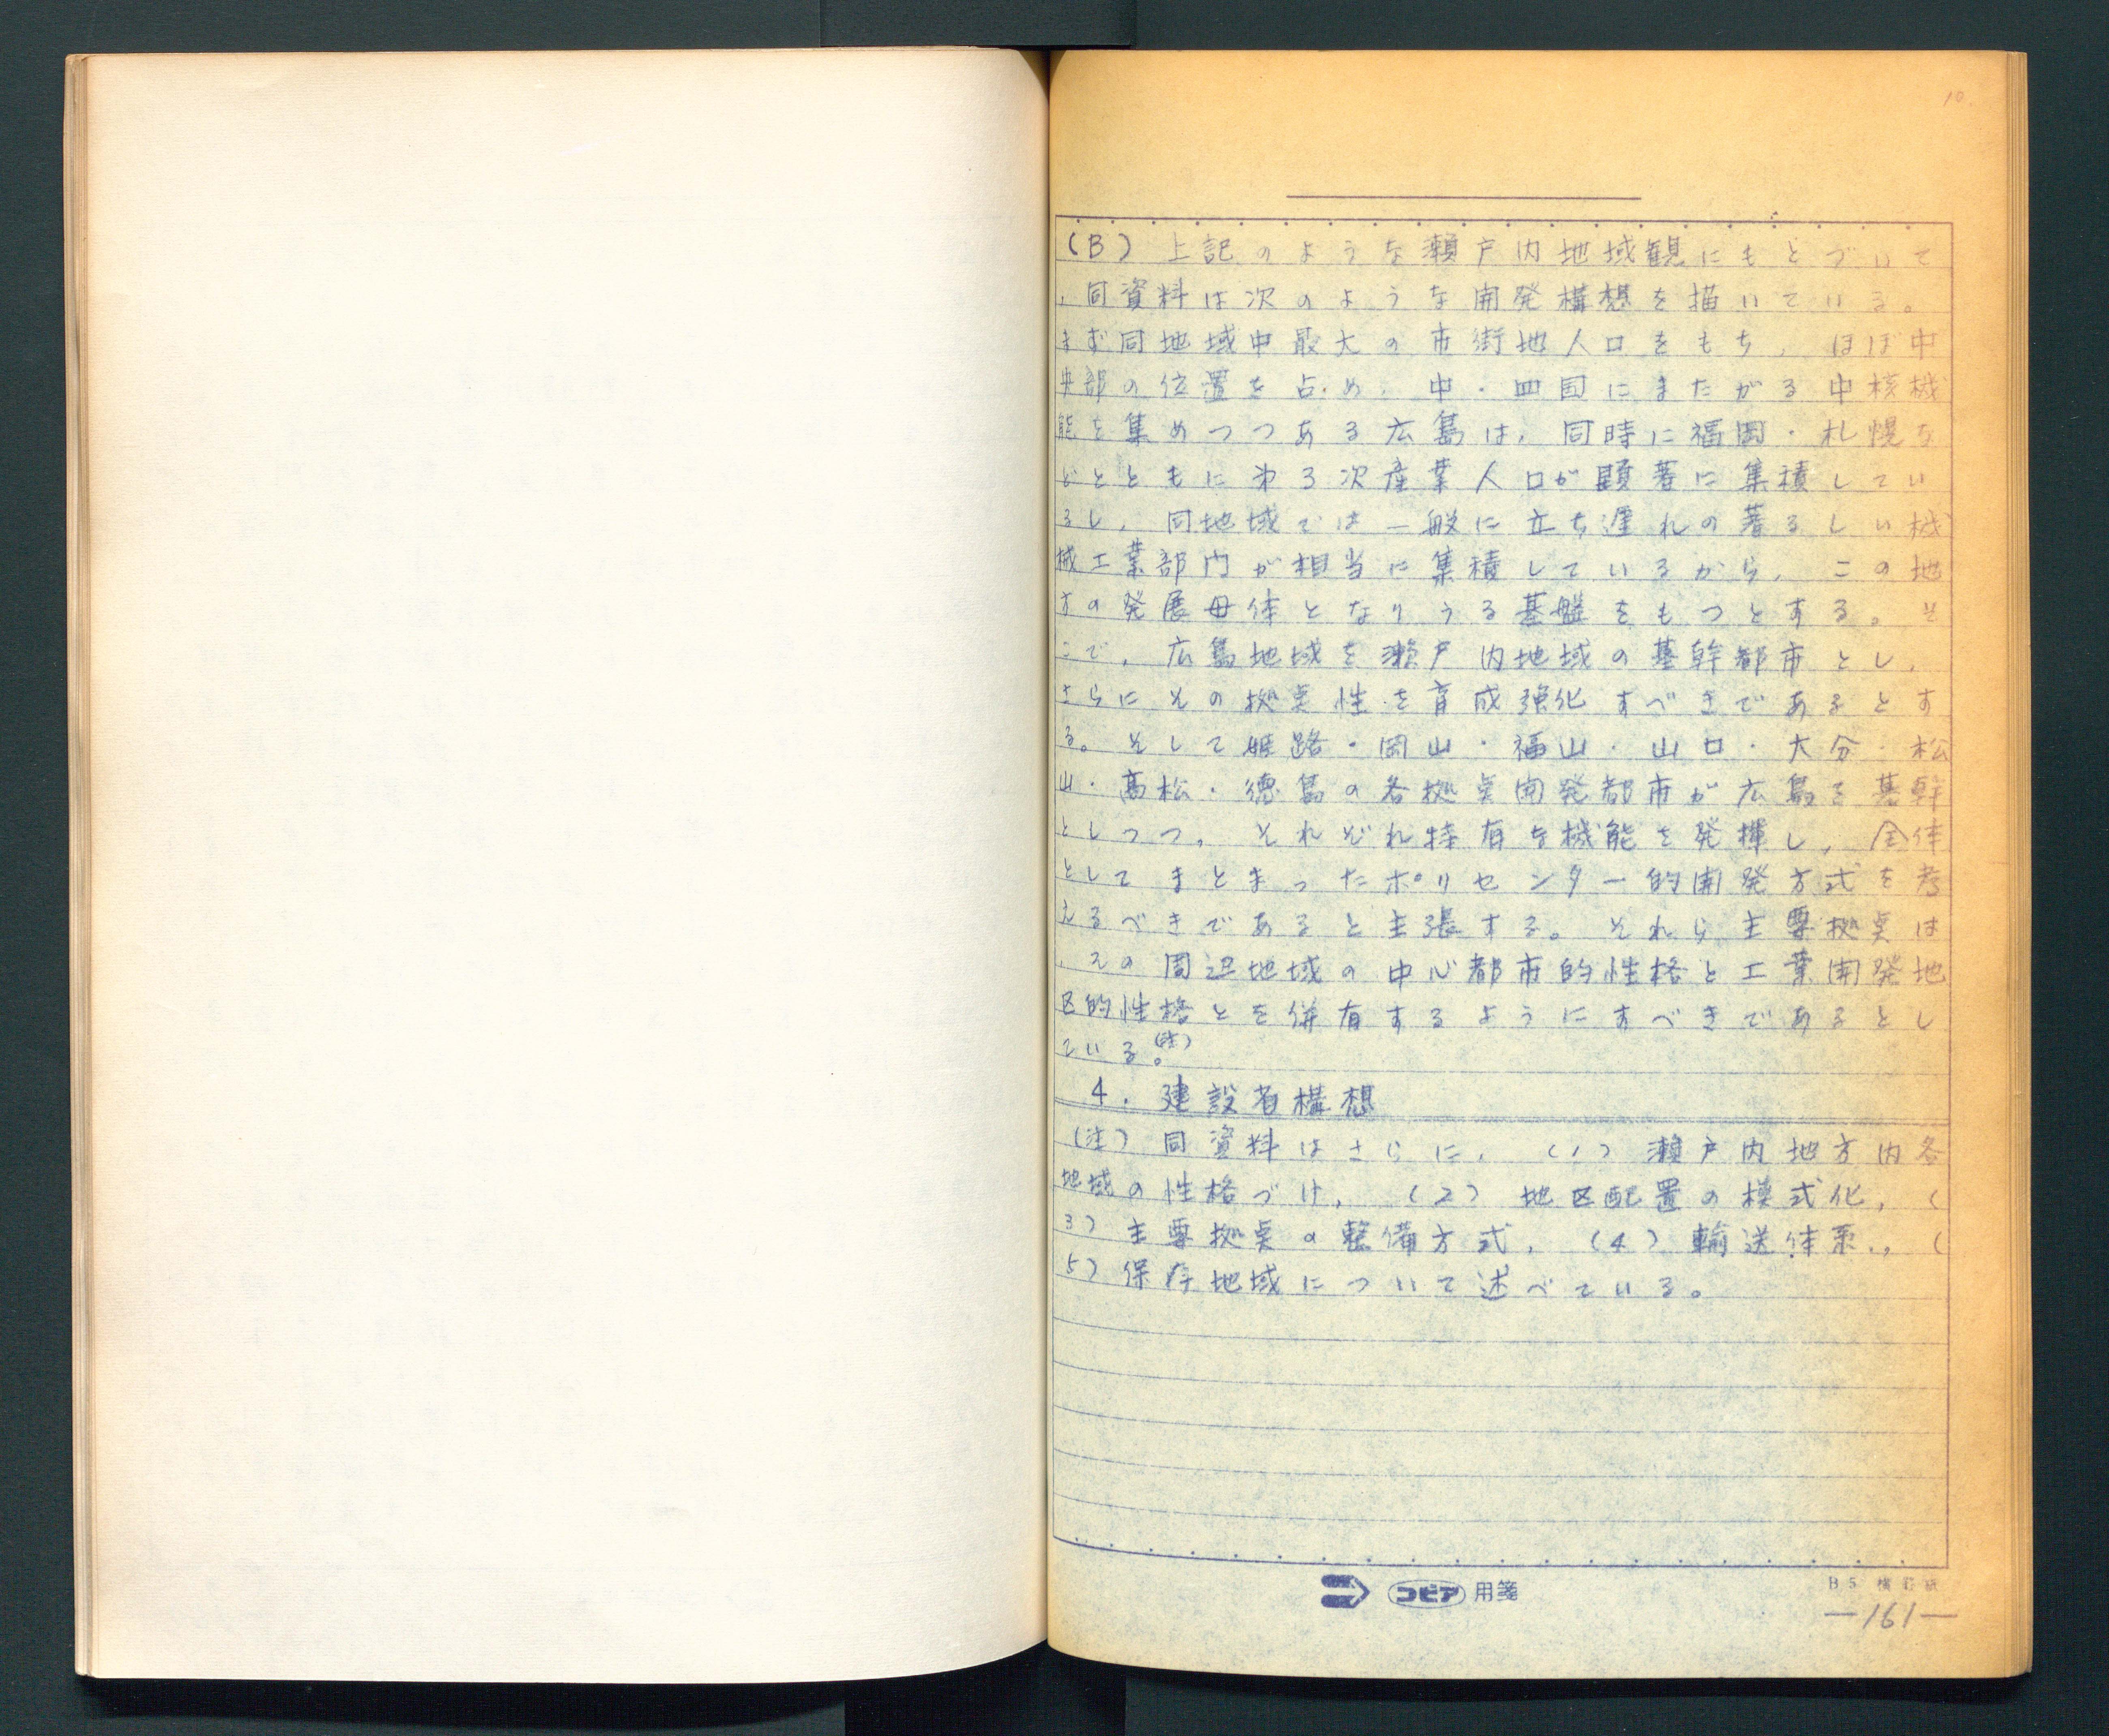 10.
(B) 上記のような瀬戸内地域観にもとづいて
，同資料は次のような開発構想を描いている。
まず同地域中最大の市街地人口をもち，ほぼ中
央部の位置を占め，中・四国にまたがる中核機
能を集めつつある広島は，同時に福岡・札幌な
どとともに第3次産業人口が顕著に集積してい
るし，同地域では一般に立ち遅れの著るしい機
械工業部門が相当に集積しているから，この地
方の発展母体となりうる基盤をもつとする。そ
こで，広島地域を瀬戸内地域の基幹都市とし，
さらにその拠点性を育成強化すべきであるとす
る。そして姫路・岡山・福山・山口・大分・松
山・高松・徳島の各拠点開発都市が広島を基幹
としつつ，それぞれ特有な機能を発揮し，全体
としてまとまったポリセンター的開発方式を考
えるべきであると主張する。それら主要拠点は
，その周辺地域の中心都市的性格と工業開発地
区的性格とを併有するようにすべきであるとし
ている(注)。
4．建設省構想
(注) 同資料はさらに，(1) 瀬戸内地方内各
地域の性格づけ，(2) 地区配置の様式化，(
3) 主要拠点の整備方式，(4) 輸送体系，(
5) 保存地域について述べている。
コピア 用箋
B5 横罫紙
—161—